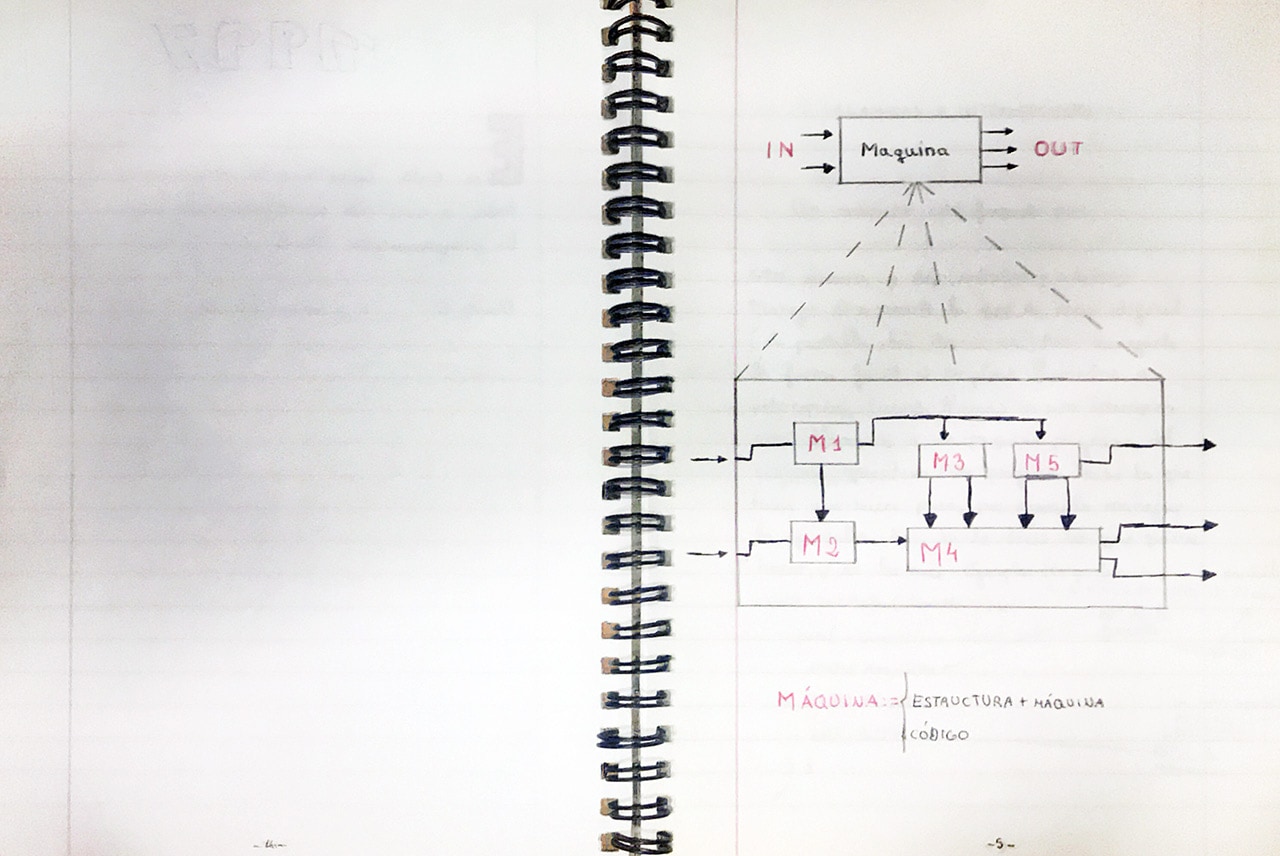 IN
Maquina
OUT
M1
M3
M5
M2
M4
MÁQUINA::= ESTRUCTURA + MÁQUINA
CÓDIGO
-4-
-5-